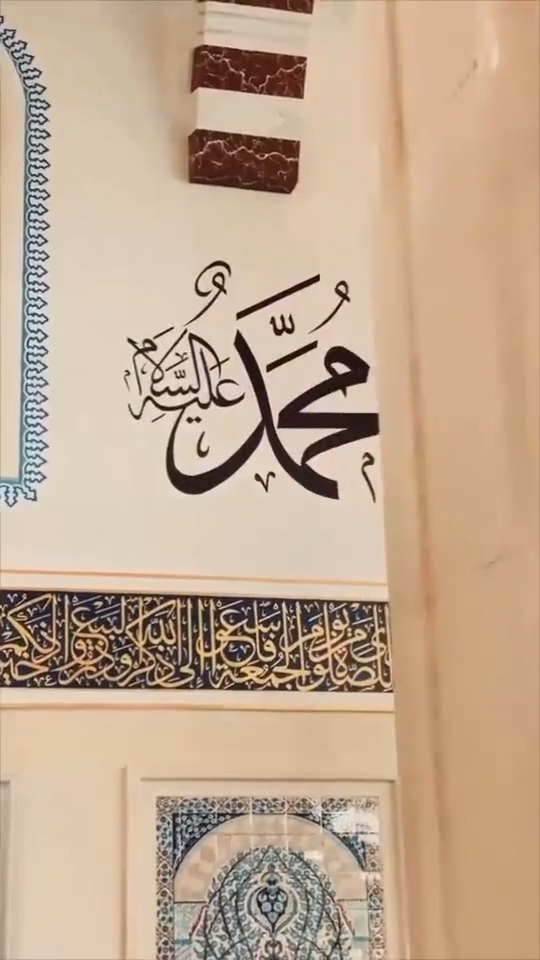 محمد عليه السلام
للصلوة من يوم الجمعة فاسعوا إلى ذكر الله وذروا البيع ذلكم خير